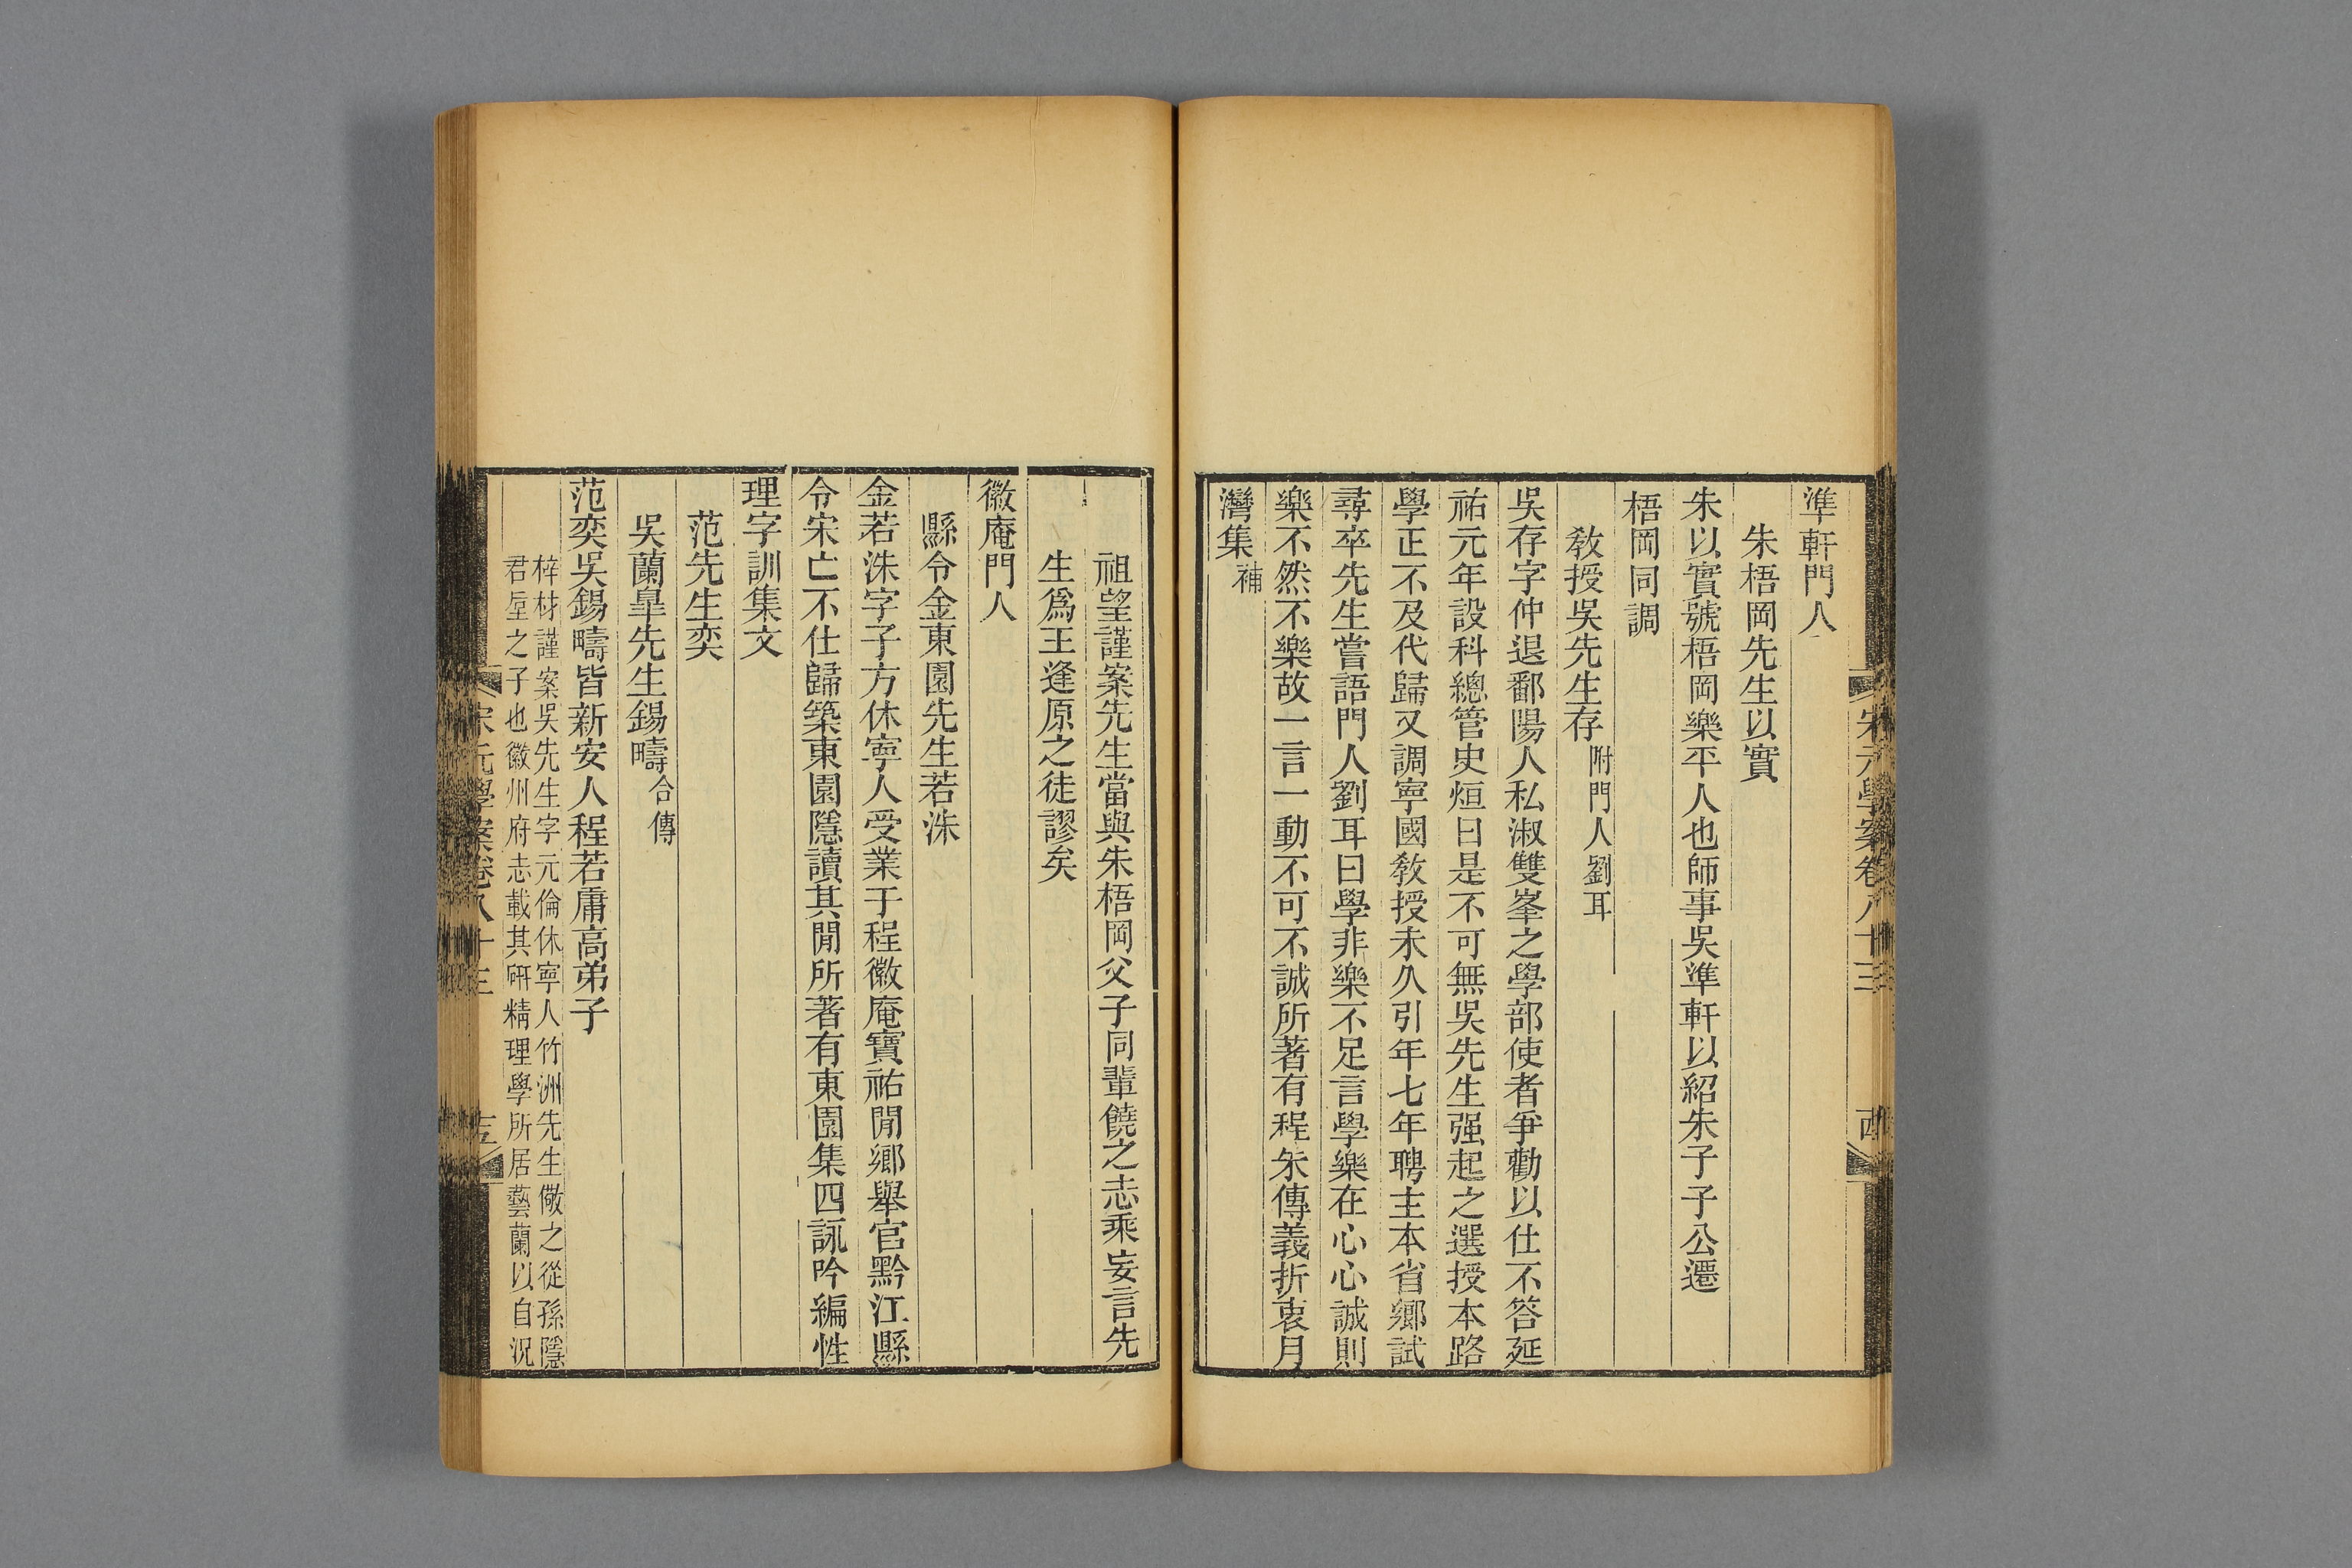 宋元學案卷八十三
準軒門人
朱梧岡先生以實
朱以實號梧岡樂平人也師事吳準軒以紹朱子子公遷
梧岡同調
教授吳先生存附門人劉耳
吳存字仲退鄱陽人私淑雙峯之學部使者爭勸以仕不答延
祐元年設科總管史烜曰是不可無吳先生强起之選授本路
學正不及代歸又調寧國教授未久引年七年聘主本省鄉試
尋卒先生嘗語門人劉耳曰學非樂不足言學樂在心心誠則
樂不然不樂故一言一動不可不誠所著有程朱傳義折衷月
灣集補
祖望謹案先生當與朱梧岡父子同輩饒之志乘妄言先
生爲王逢原之徒謬矣
徽庵門人
縣令金東園先生若洙
金若洙字子方休寧人受業于程徽庵寶祐閒鄉舉官黔江縣
令宋亡不仕歸築東園隱讀其閒所著有東園集四詠吟編性
理字訓集文
范先生奕
吳蘭臯先生錫疇合傳
范奕吳錫疇皆新安人程若庸高弟子
梓材謹案吳先生字元倫休寧人竹洲先生儆之從孫隱
君垕之子也徽州府志載其研精理學所居藝蘭以自況
宋元學案卷八十三